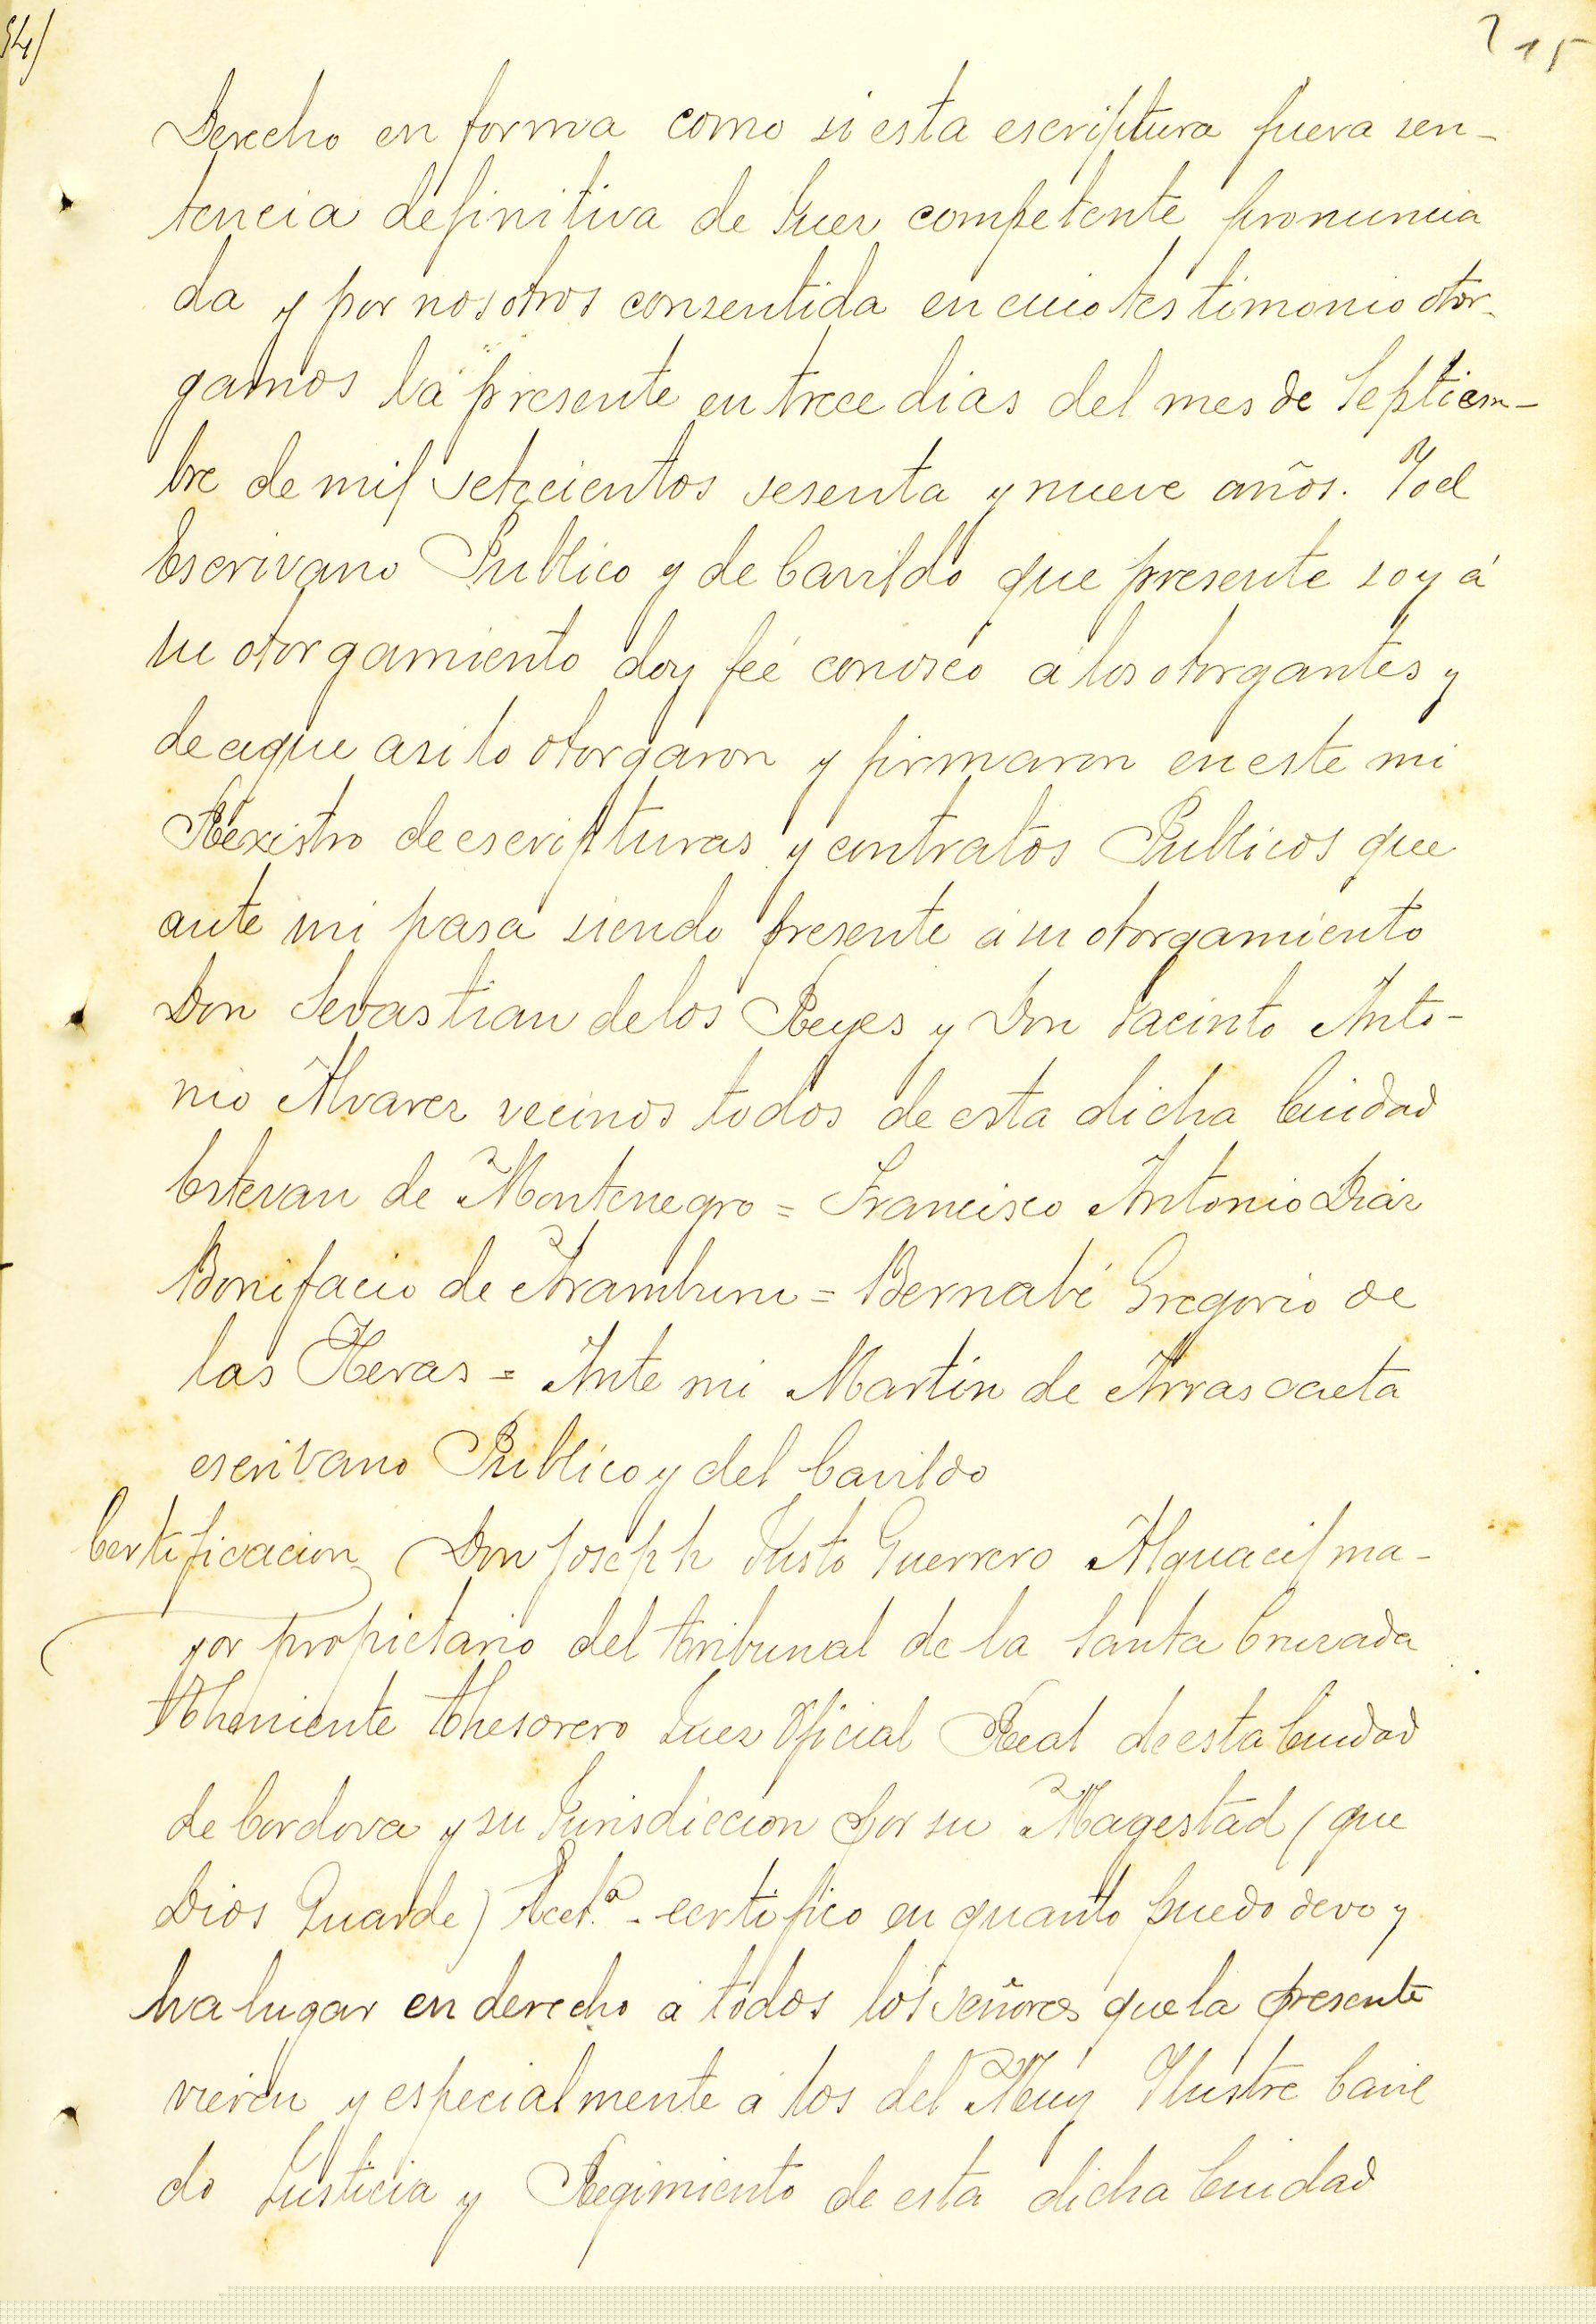 54)
215
Derecho en forma como si esta escriptura fuera sen-
tencia definitiva de Juez competente pronuncia
da y por nosotros consentida en cuio testimonio otor-
gamos la presente en trece dias del mes de Septiem-
bre de mil setecientos sesenta y nueve años. Yo el
Escrivano Publico y de Cavildo que presente soy á
su otorgamiento doy feé conosco a los otorgantes y
de aque asi lo otorgaron y firmaron en este mi
Rexistro de escripturas y contratos Publicos que
ante mi pasa siendo presente á su otorgamiento
Don Sevastian de los Reyes y Don Jacinto Anto-
nio Alvarez vecinos todos de esta dicha Ciudad
Estevan de Montenegro = Francisco Antonio Diaz
Bonifacio de Aramburu = Bernabé Gregorio de
las Heras = Ante mi Martin de Arrascaeta
escrivano Publico y del Cavildo
Certificacion Don Joseph Justo Guerrero Alguacil ma-
yor propietario del tribunal de la Santa Cruzada
Theniente thesorero Juez Oficial Real de esta Ciudad
de Cordova y su Jurisdiccion por su Magestad (que
Dios Guarde) - certifico en quanto puedo devo y
ha lugar en derecho a todos los señores que la presente
vieren y especialmente a los del Muy Ilustre Cavil
do Justicia y Regimiento de esta dicha Ciudad